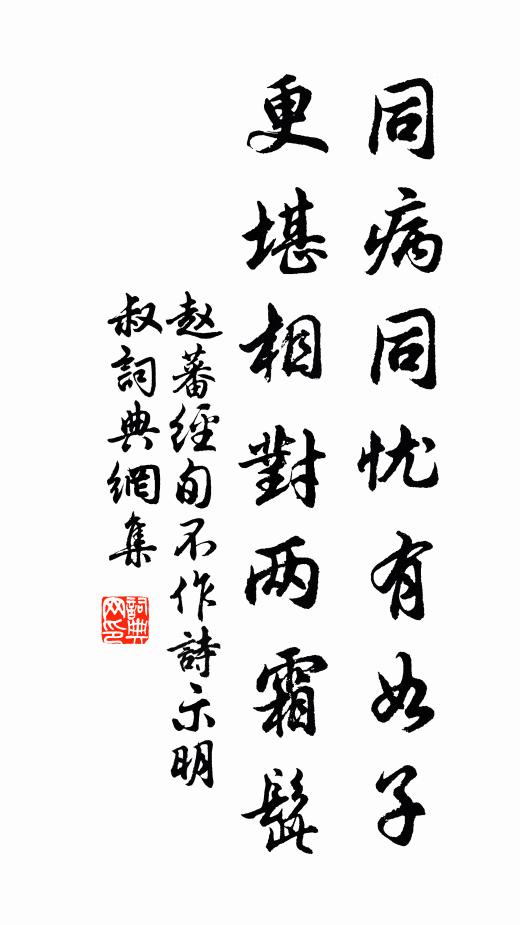 同病同忧有如子
更堪相對两霜髭
赵蕃經旬不作詩示明
叔詞典網集
詞典
网印